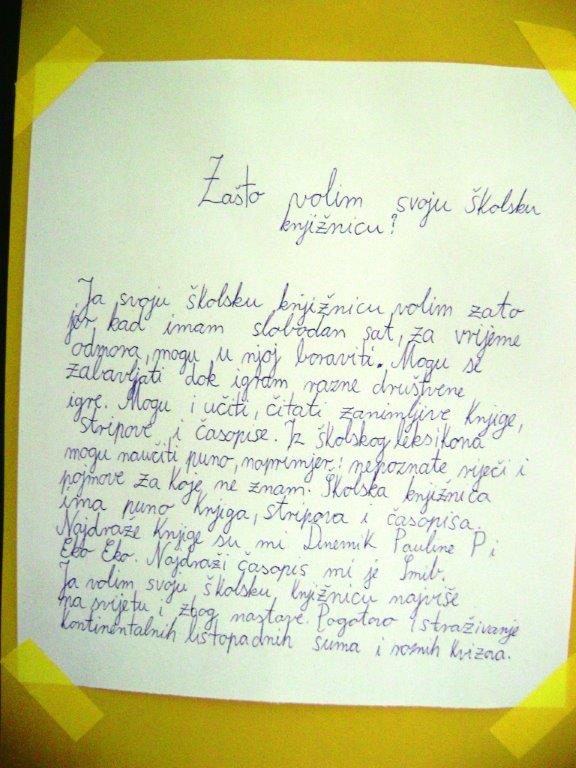 Zašto volim svoju školsku
knjižnicu?
Ja svoju školsku knjižnicu volim zato
jer, kad imam slobodan sat, za vrijeme
odmora, mogu u njoj boraviti. Mogu se
zabavljati dok igram razne društvene
igre. Mogu i učiti, čitati zanimljive knjige,
stripove i časopise. Iz školskog leksikona
mogu naučiti puno, naprimjer: nepoznate riječi i
pojmove za koje ne znam. Školska knjižnica
ima puno knjiga, stripova i časopisa.
Najdraže knjige su mi Dnevnik Pauline P i
Eko Eko. Najdraži časopis mi je Smib.
Ja volim svoju školsku knjižnicu najviše
na svijetu i zbog nastave. Pogotovo istraživanje
kontinentalnih listopadnih šuma i raznih kvizova.